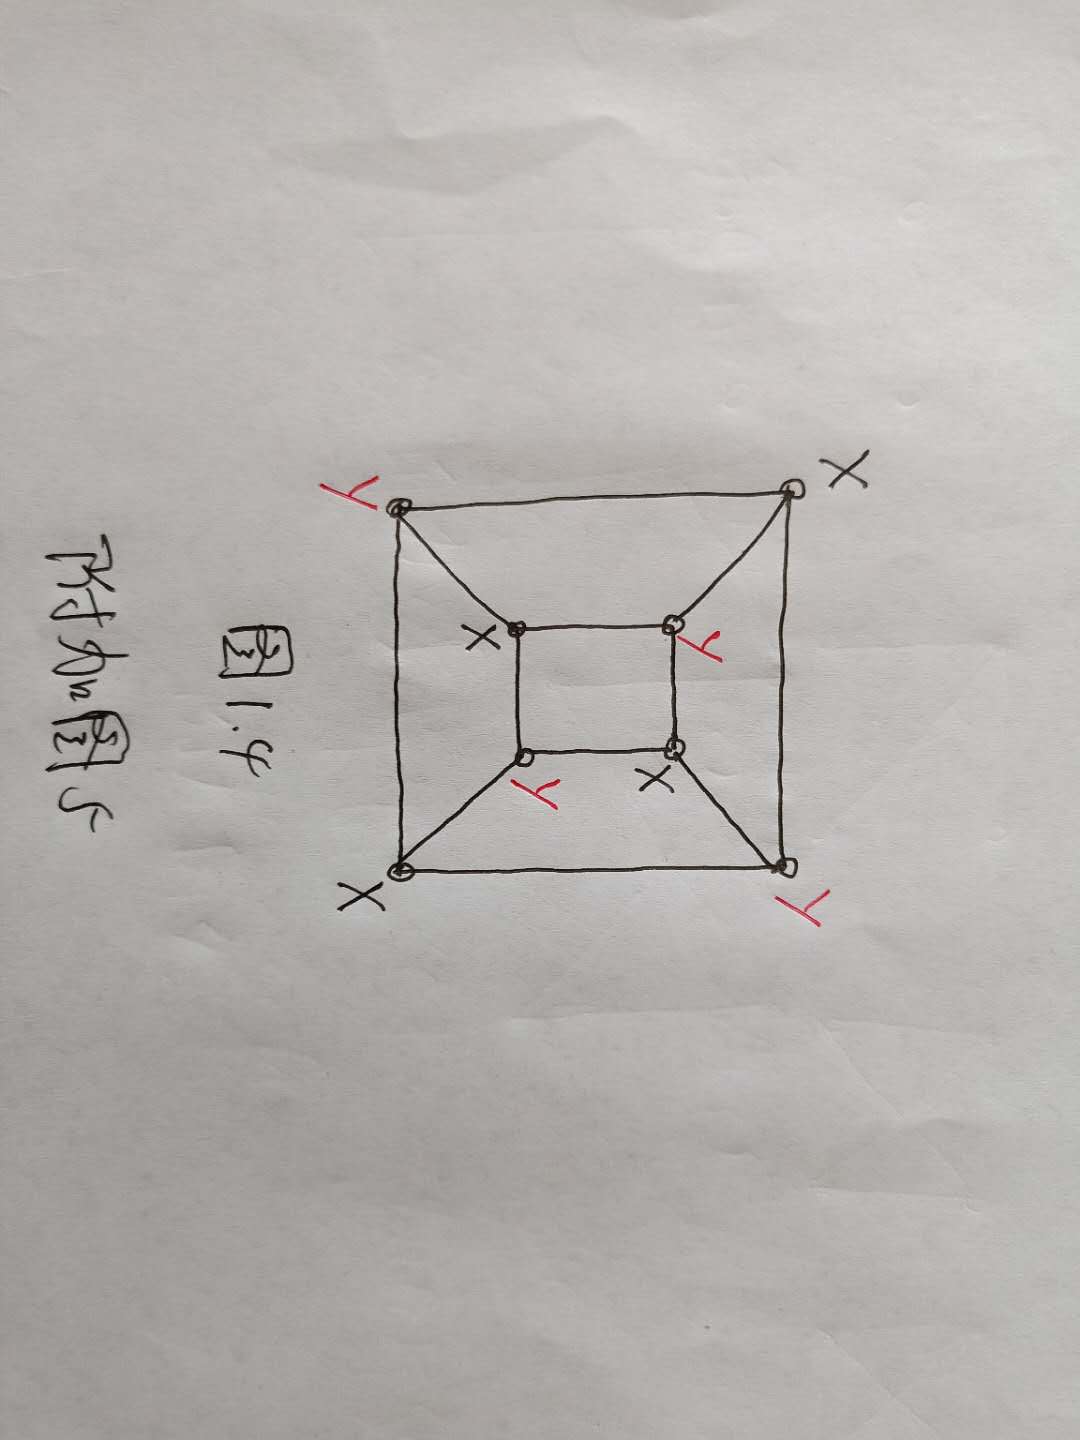 X
Y
Y
X
Y
X
Y
X
图1.4
附加图5